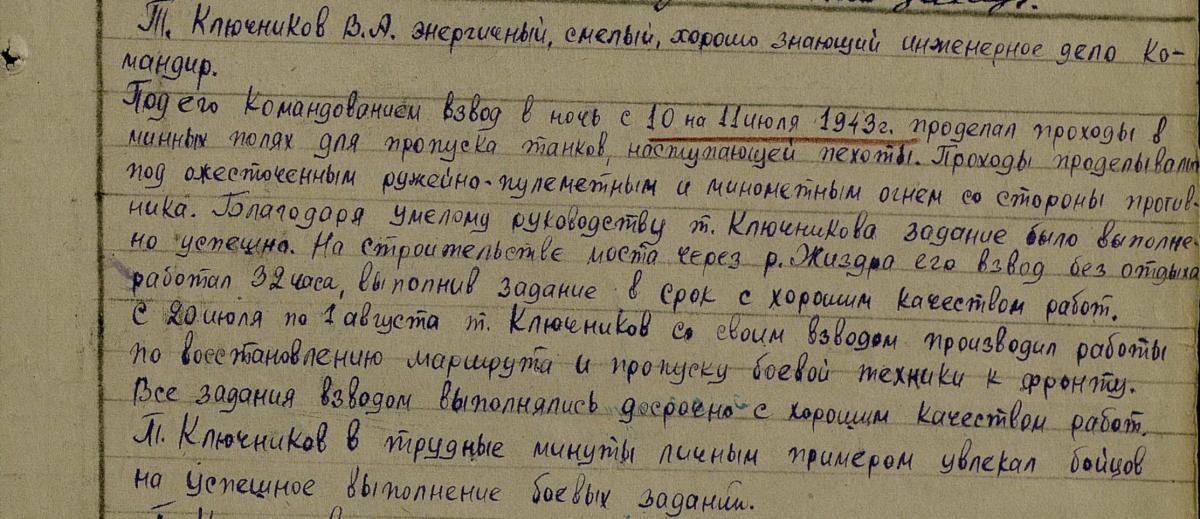 Т. Ключников В.А. энергичный, смелый, хорошо знающий инженерное дело ко-
мандир.
Под его командованием взвод в ночь с 10 на 11 июля 1943г. проделал проходы в
минных полях для пропуска танков, наступающей пехоты. Проходы проделывали
под ожесточенным ружейно-пулеметным и минометным огнем со стороны против-
ника. Благодаря умелому руководству т. Ключникова задание было выполне-
но успешно. На строительстве моста через р. Жиздра его взвод без отдыха
работал 32 часа, выполнив задание в срок с хорошим качеством работ.
С 20 июля по 1 августа т. Ключников со своим взводом производил работы
по восстановлению маршрута и пропуску боевой техники к фронту.
Все задания взводом выполнялись досрочно с хорошим качеством работ.
Т. Ключников в трудные минуты личным примером увлекал бойцов
на успешное выполнение боевых заданий.